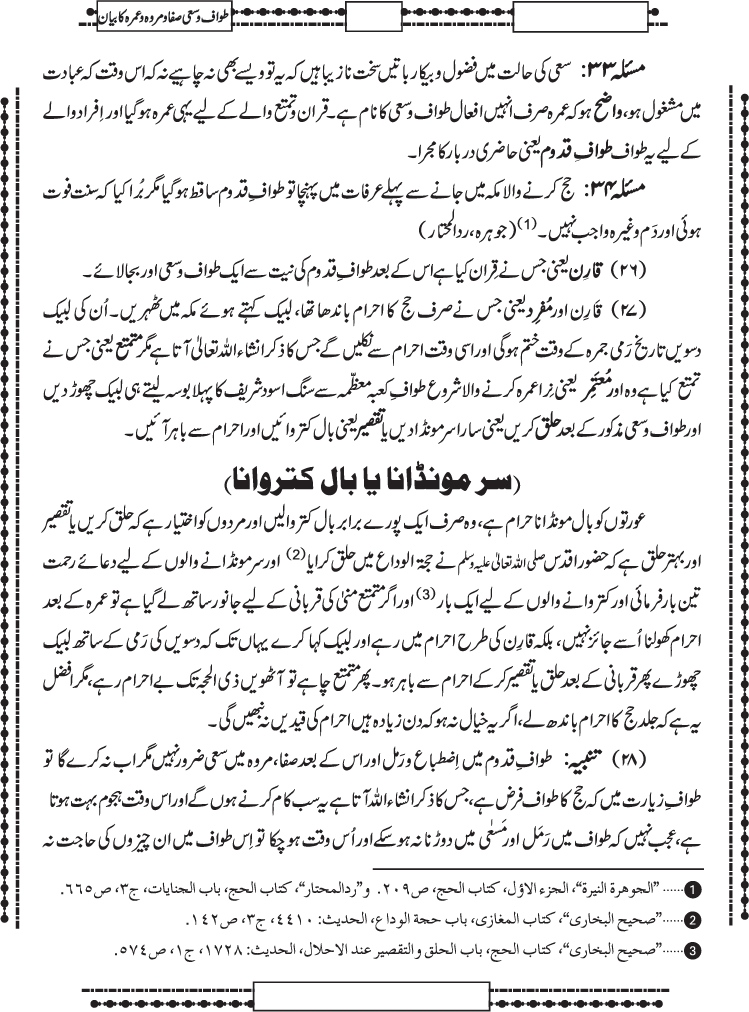 طواف و سعی صفا و مروہ و عمرہ کا بیان
مسئلہ ۳۳: سعی کی حالت میں فضول و بیکار باتیں سخت نازیبا ہیں کہ یہ تو ویسے بھی نہ چاہیے نہ کہ اس وقت کہ عبادت
میں مشغول ہو، واضح ہو کہ عمرہ صرف انہیں افعال طواف و سعی کا نام ہے۔ قران و تمتع والے کے لیے یہی عمرہ ہو گیا اور اِفراد والے
کے لیے یہ طواف طوافِ قدوم یعنی حاضری دربار کا مجرا۔
مسئلہ ۳۴: حج کرنے والا مکہ میں جانے سے پہلے عرفات میں پہنچا تو طوافِ قدوم ساقط ہو گیا مگر بُرا کیا کہ سنت فوت
ہوئی اور دَم وغیرہ واجب نہیں۔ (1) (جوہرہ، ردالمحتار)
(۲۶) قارِن یعنی جس نے قِران کیا ہے اس کے بعد طوافِ قدوم کی نیت سے ایک طواف و سعی اور بجا لائے۔
(۲۷) قارِن اور مُفرِد یعنی جس نے صرف حج کا احرام باندھا تھا، لبیک کہتے ہوئے مکہ میں ٹھہریں۔ اُن کی لبیک
دسویں تاریخ رَمی جمرہ کے وقت ختم ہوگی اور اسی وقت احرام سے نکلیں گے جس کا ذکر انشاء اللہ تعالیٰ آتا ہے مگر متمتع یعنی جس نے
تمتع کیا ہے وہ اور مُعتمِر یعنی نِرا عمرہ کرنے والا شروع طوافِ کعبہ معظّمہ سے سنگ اسود شریف کا پہلا بوسہ لیتے ہی لبیک چھوڑ دیں
اور طواف و سعی مذکور کے بعد حلق کریں یعنی سارا سر مونڈا دیں یا تقصیر یعنی بال کتروائیں اور احرام سے باہر آئیں۔
(سر مونڈانا یا بال کتروانا)
عورتوں کو بال مونڈانا حرام ہے، وہ صرف ایک پورے برابر بال کتروالیں اور مردوں کو اختیار ہے کہ حلق کریں یا تقصیر
اور بہتر حلق ہے کہ حضور اقدس صلی اللہ تعالیٰ علیہ وسلم نے حجۃ الوداع میں حلق کرایا (2) اور سر مونڈانے والوں کے لیے دعائے رحمت
تین بار فرمائی اور کتروانے والوں کے لیے ایک بار (3) اور اگر متمتع منیٰ کی قربانی کے لیے جانور ساتھ لے گیا ہے تو عمرہ کے بعد
احرام کھولنا اُسے جائز نہیں، بلکہ قارِن کی طرح احرام میں رہے اور لبیک کہا کرے یہاں تک کہ دسویں کی رَمی کے ساتھ لبیک
چھوڑے پھر قربانی کے بعد حلق یا تقصیر کر کے احرام سے باہر ہو۔ پھر متمتع چاہے تو آٹھویں ذی الحجہ تک بے احرام رہے، مگر افضل
یہ ہے کہ جلد حج کا احرام باندھ لے، اگر یہ خیال نہ ہو کہ دن زیادہ ہیں احرام کی قیدیں نہ نبھیں گی۔
(۲۸) تنبیہ: طوافِ قدوم میں اِضطباع و رَمل اور اس کے بعد صفا، مروہ میں سعی ضرور نہیں مگر اب نہ کرے گا تو
طوافِ زیارت میں کہ حج کا طواف فرض ہے، جس کا ذکر انشاء اللہ آتا ہے یہ سب کام کرنے ہوں گے اور اس وقت ہجوم بہت ہوتا
ہے، عجب نہیں کہ طواف میں رَمَل اور مَسعٰی میں دوڑنا نہ ہو سکے اور اُس وقت ہو چکا تو اِس طواف میں ان چیزوں کی حاجت نہ
1 ...... ”الجوهرة النيرة“، الجزء الاول، كتاب الحج، ص۲۰۹. و”ردالمحتار“، كتاب الحج، باب الجنايات، ج۳، ص۶۶۵.
2 ...... ”صحيح البخاری“، كتاب المغازی، باب حجة الوداع، الحديث: ۴۴۱۰، ج۳، ص۱۴۲.
3 ...... ”صحيح البخاری“، كتاب الحج، باب الحلق والتقصير عند الاحلال، الحديث: ۱۷۲۸، ج۱، ص۵۷۴.